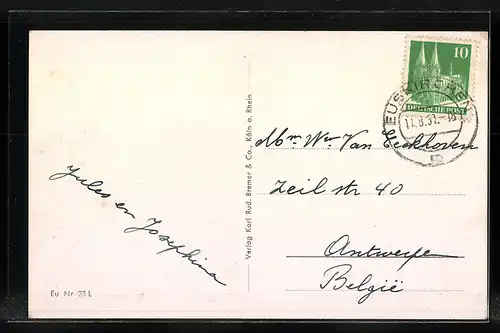 10
DEUTSCHE POST
EUSKIRCHEN
11.8.51.-18
Mbr Wwe Van Eeckhoven
Zeil str 40
Antwerpen
België
Jules en Josephina
Verlag Karl Rud. Bremer & Co., Köln a. Rhein
Eu Nr. 23 L